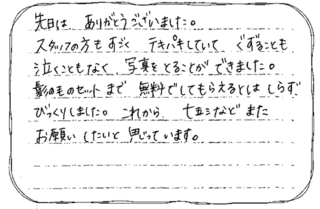 先日は ありがとうございました。
スタッフの方も すごく テキパキしていて ぐずることも
泣くこともなく、写真を とることが できました。
のものセットまで 無料でしてもらえるとは しらず
びっくりしました。これから 七五三など また
お願いしたいと 思っています。